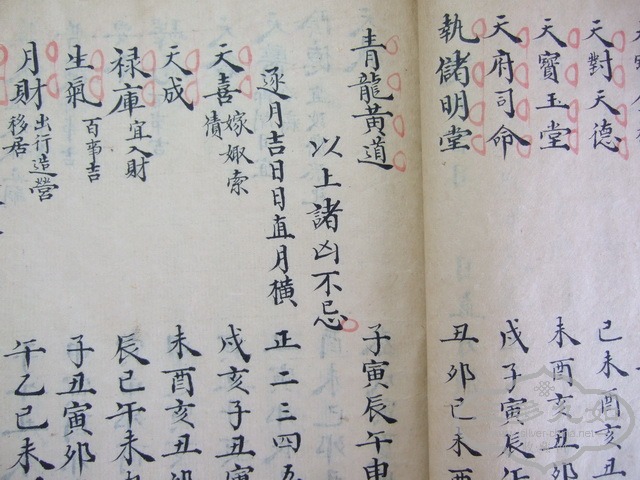 天對天德 巳未酉亥丑
天寶玉堂 未酉亥丑卯
天府司命 戌子寅辰午
執儲明堂 丑卯巳未酉
青龍黃道 子寅辰午申
以上諸凶不忌
逐月吉日日直月橫 正二三四五
天喜 嫁娵索債 戌亥子丑寅
天成 未酉亥丑卯
禄庫 宜入財 辰巳午未
生氣 百事吉 子丑寅卯
月財 出行造營移居 午乙巳未